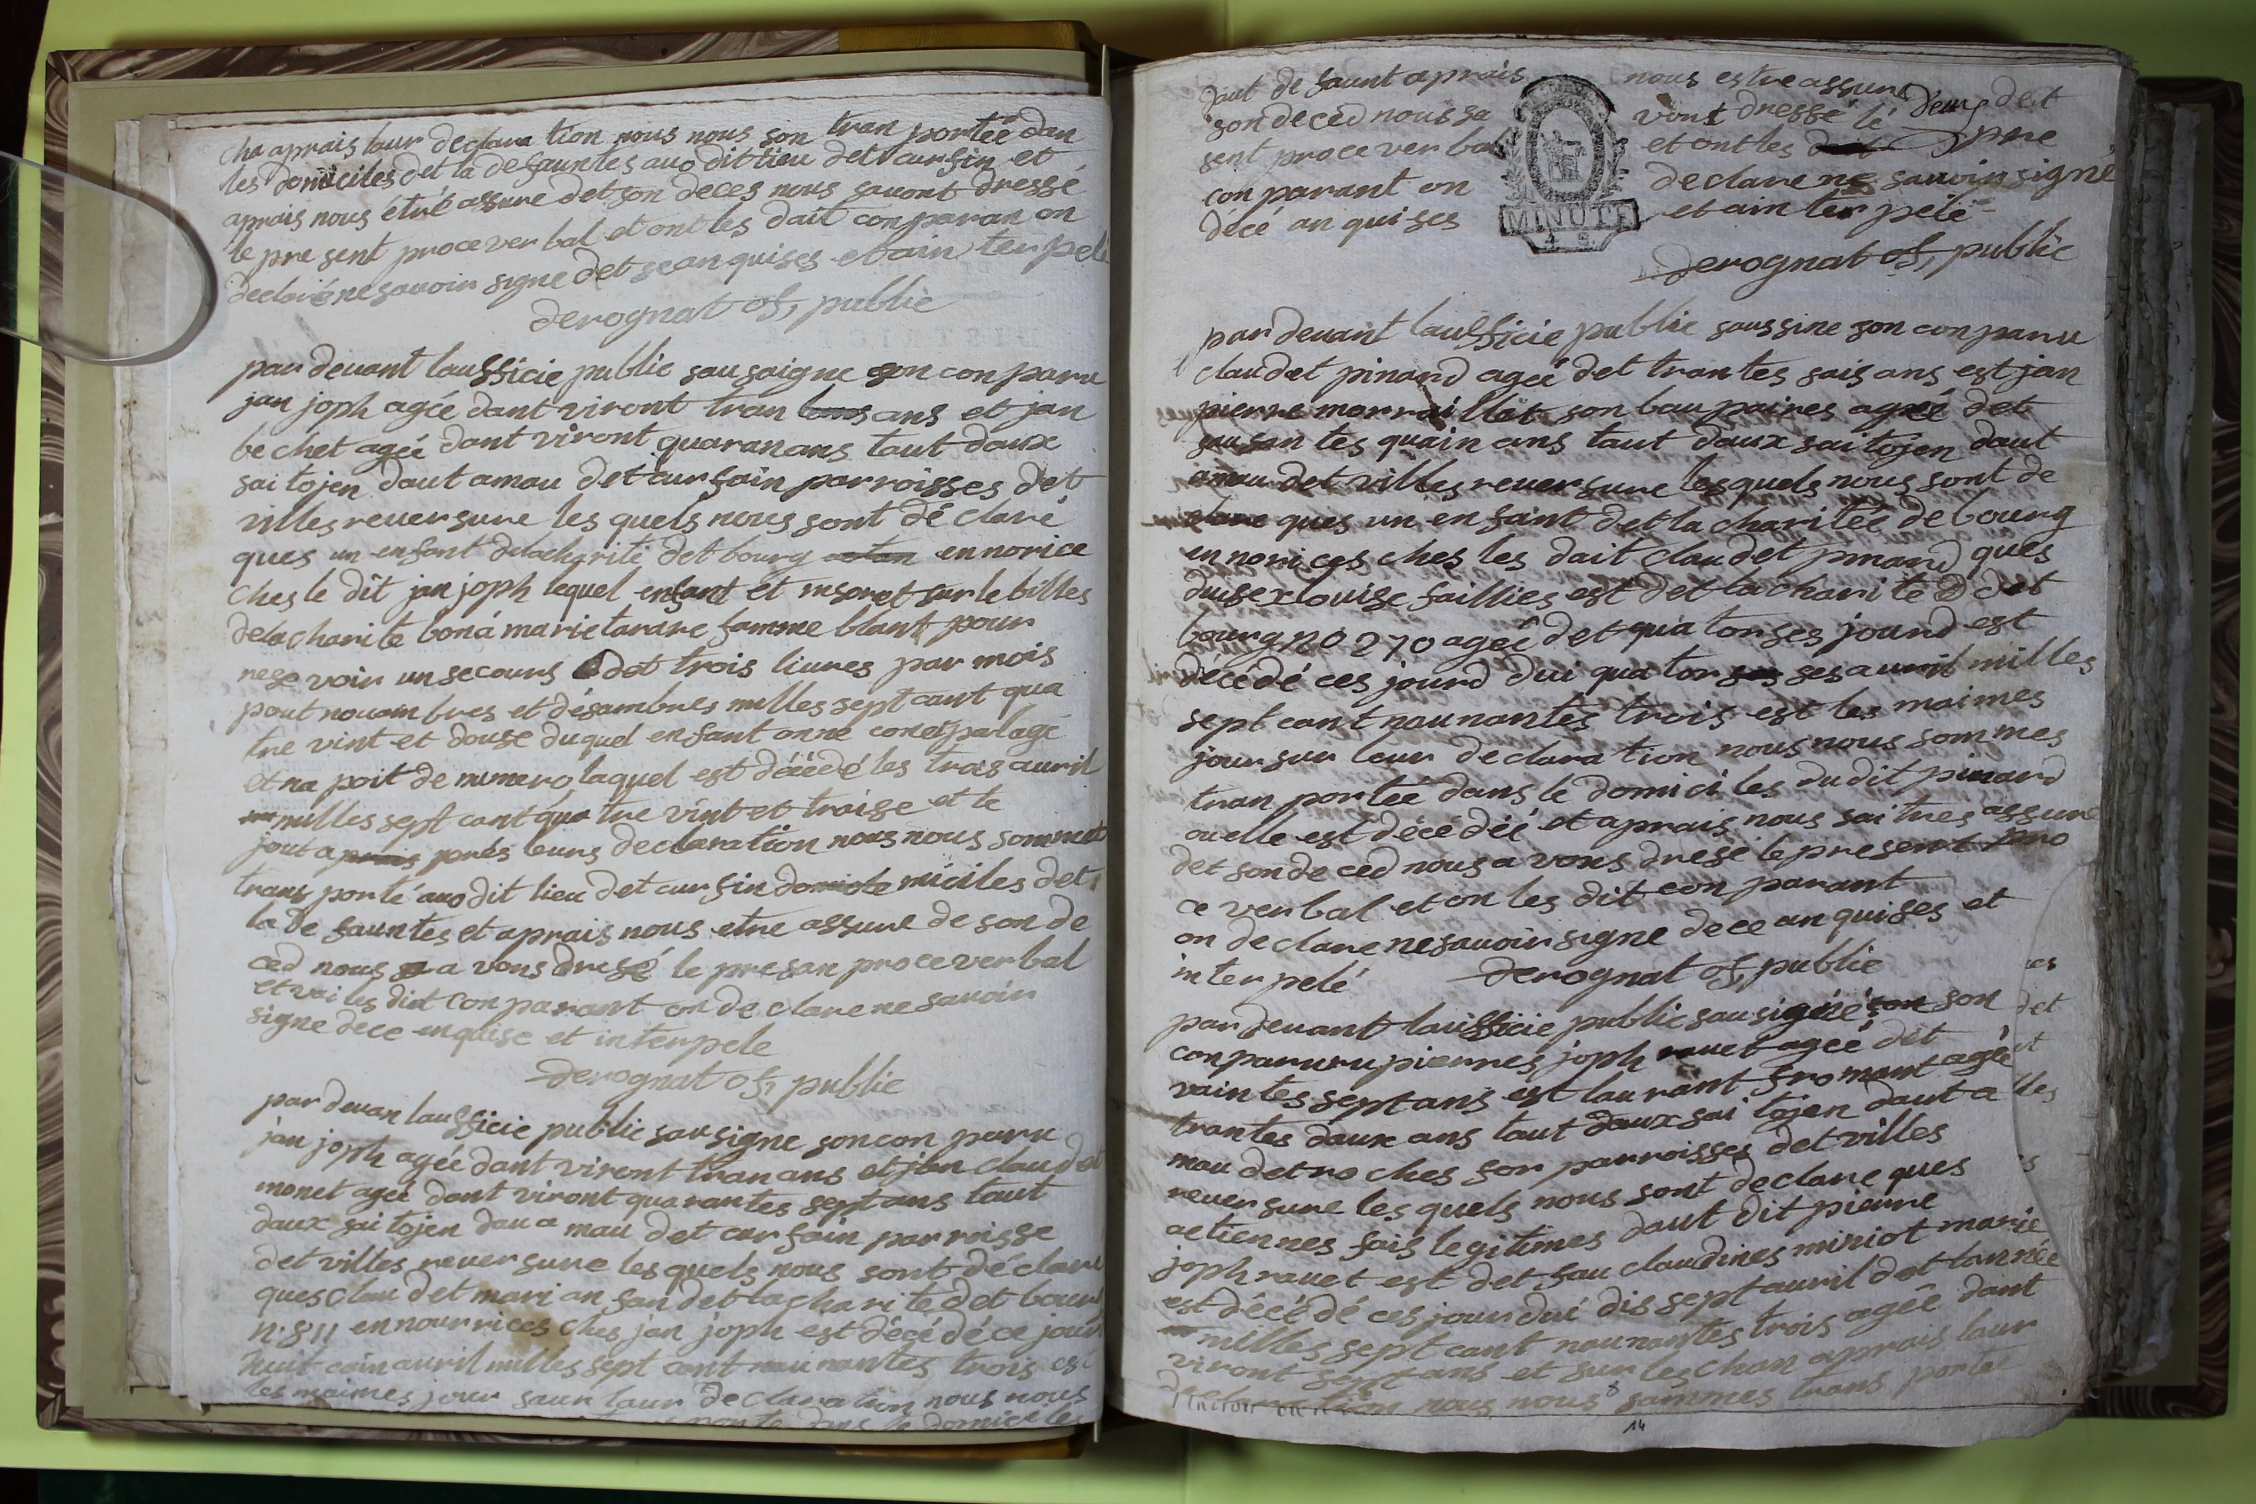 cha aprais laur declara tion nous nous son tran portéé dan
les domiciles det la defauntes auo dit lieu det cursin et
aprais nous étré assure det son deces nous sauont dressé
le pre sent proce ver bal et ont les dait con paran on
declaré ne sauoir signe det se an quises et ain ter pelé
derognat of, public
par devant laufficie public sau saigne son con paru
jan joph agée dant viront tran ans et jan
be chet agée dant viront quaran ans taut daux
sai tojen daut amau det cur sain parroisses det
villes reuersure les quels nous sont dé claré
ques un enfant delacharité det bourg en norice
Ches le dit jan joph lequel enfant et insoret sur le billes
dela charite bon á marie tarare famme blant pour
rese voir un secours det trois liures par mois
pout nouam bres et désambres milles sept cant qua
tre vint et douse duquel enfant onne conet pa lage
et na poit de numero laquel est décédé les trois auril
milles sept cant qua tre vint et traise et le
jout a prés leurs declaration nous nous sommes
trans porté auo dit lieu det cur sin miciles det
la de fauntes et aprais nous etre assure de son de
ced nous a vons dresé le presan proce verbal
et les dict con parant on de clare ne savoir
signe dece enquise et interpele
derognat of, public
par devan laufficie public sau signe son con paru
jan joph agée dant viront tran ans et jan claudet
monet agée dant viront quarantes sept ans taut
daux sai tojen dau a mau det cur sain parroisse
det villes reuersure les quels nous sont dé claré
ques clau det mari an fan det la charité det bour
n. 811 en nourrices ches jan joph est décé dé ce jour
huit cain auril milles sept cant nau nantes trois est
les maimes jour saur laur de claration nous nous
porté dans le domiciles
daut de faunt aprais nous estre assure
son deced nous sa vont dressé lé deus det
sent proce ver bal et ont les pre
con parant on declare ne sauoir signé
décé an quises et ain ter pelé
derognat of, public
par devant laufficie public saussine son con paru
claudet pinard ageé det trantes sais ans est jan
pierre morraillet son bau paires ageé det
sau san tes quain ans taut daux sai tojen daut
amau det villes reuersure les quels nous sont de
clare ques un en faint det la charitée de bourg
en norices ches les dait claudet pinard ques
duise louise faillies est det la charité det
bourg no 270 ageé det qua torses jourd est
décédé ces jourd dui qua tor ses auril milles
sept cant nau nantes trois est les maimes
jour sur leur declara tion nous nous sommes
tran portée dans le domici les dudit pinard
ouelle est décé déé et aprais nous sai tres assure
det son de ced nous a vons dresé le present pro
ce verbal et on les dit con parant
on declare ne sauoir signe de ce an quises et
in terpelé derognat of, public
par devant laufficie public sau signé son
conparuru pierres joph rauet ageé det
vaintes sept ans est laurant fromant agée
trantes daux ans taut daux sai tojen daut a
mau det roches for parroisses det villes
reuersure les quels nous sont declare ques
aetiennes fais legitimes daut dit pierre
joph rauet est det fau claudines miniot marie
est décédé ces jour dui dis sept auril det lannée
milles sept cant nau nantes trois agée dant
viront sept ans et sur les chan aprais laur
declara tion nous nous sammes trans porter
8
14
MINUTE